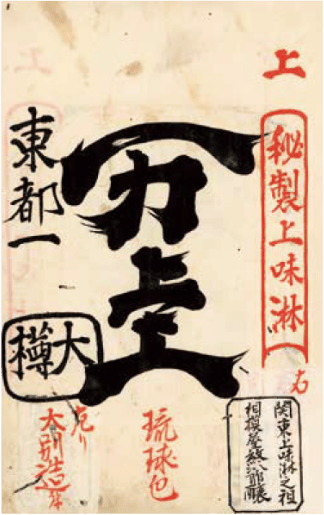 上
秘製上味淋
右
関東上味淋之祖
相模屋
醸
万上
琉球包
東都一
大樽
大別造